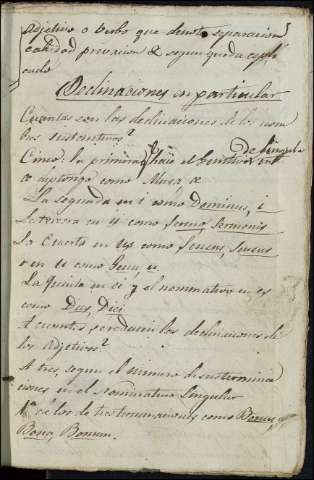 adjetivo o verbo que denote separacion
calidad privacion & segun queda espli
cado
Declinaciones en particular
Cuantas son las declinaciones de los nom
bres sustantivos?
Cinco: la primera haze el genitivo de singular en
æ diptongo como Musa æ
La segunda en i como Dominus, i
La tercera en is como Sermo, Sermonis
La Cuarta en us como Sensus, Sensus
o en u como Genu, u
La Quinta en ei y el nominativo en es
como Dies, Diei
A cuantas se reducen las declinaciones de
los adjetivos?
A tres segun el numero de sus termina
ciones en el Nominativo Singular
1a de los de tres terminaciones como Bonus,
Bona, Bonum.